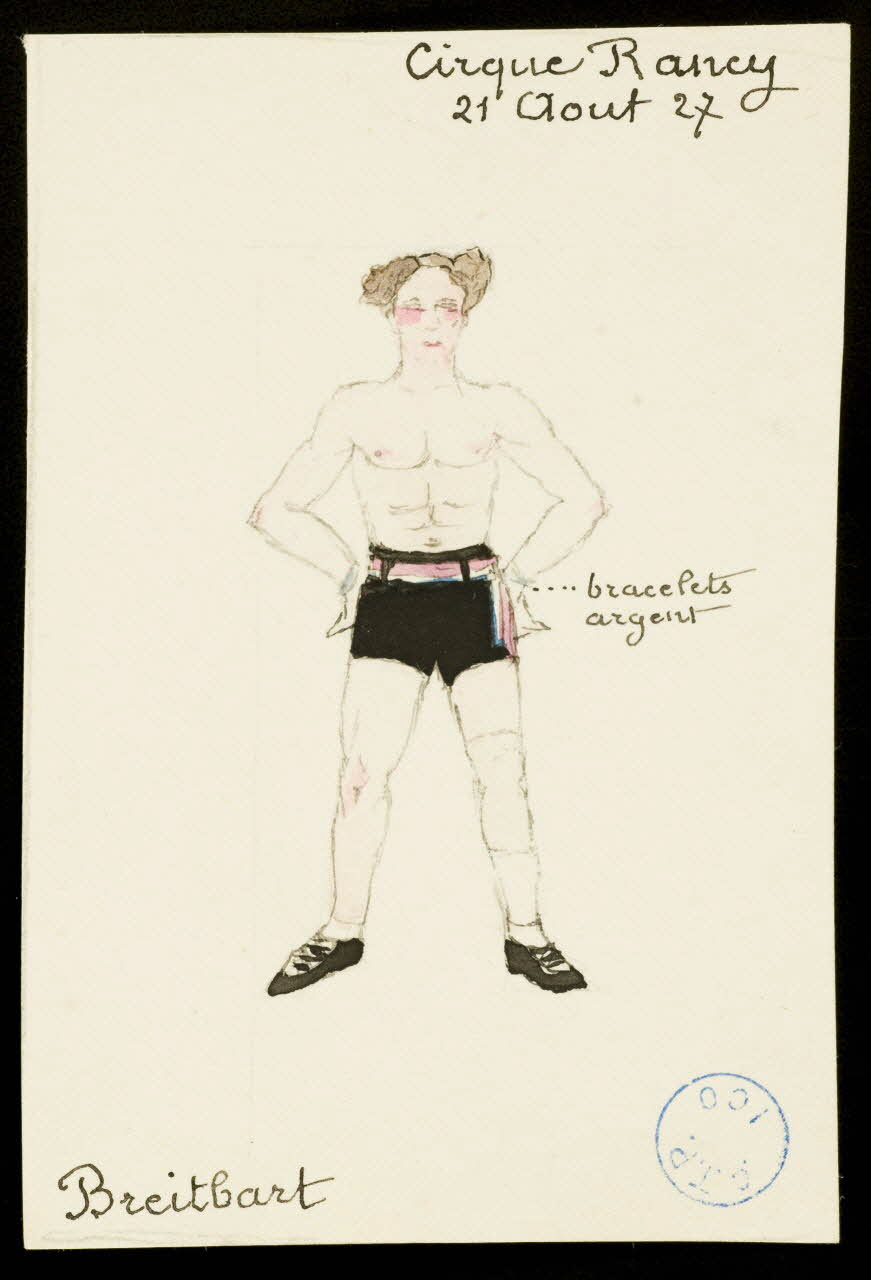 Cirque Rancy
21 Aout 27
bracelets
argent
Breitbart
001